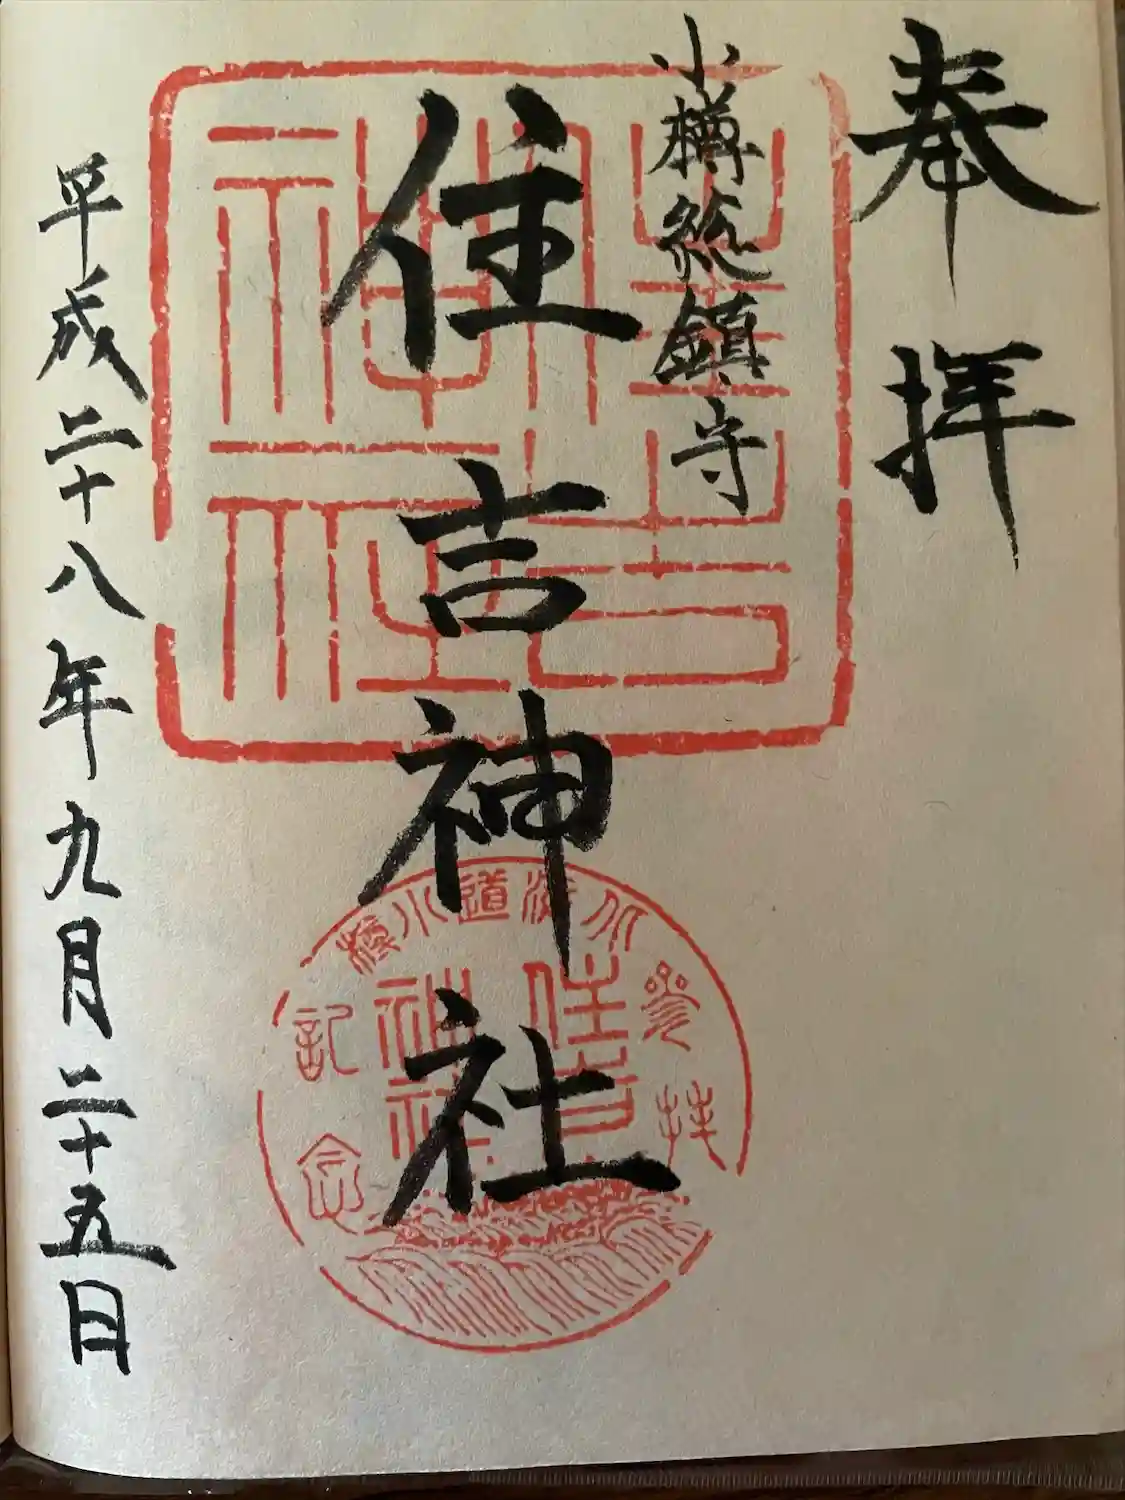 奉拝
小樽総鎮守
住吉神社
平成二十八年九月二十五日
住吉神社
北海道小樽
登拝記念
住吉神社